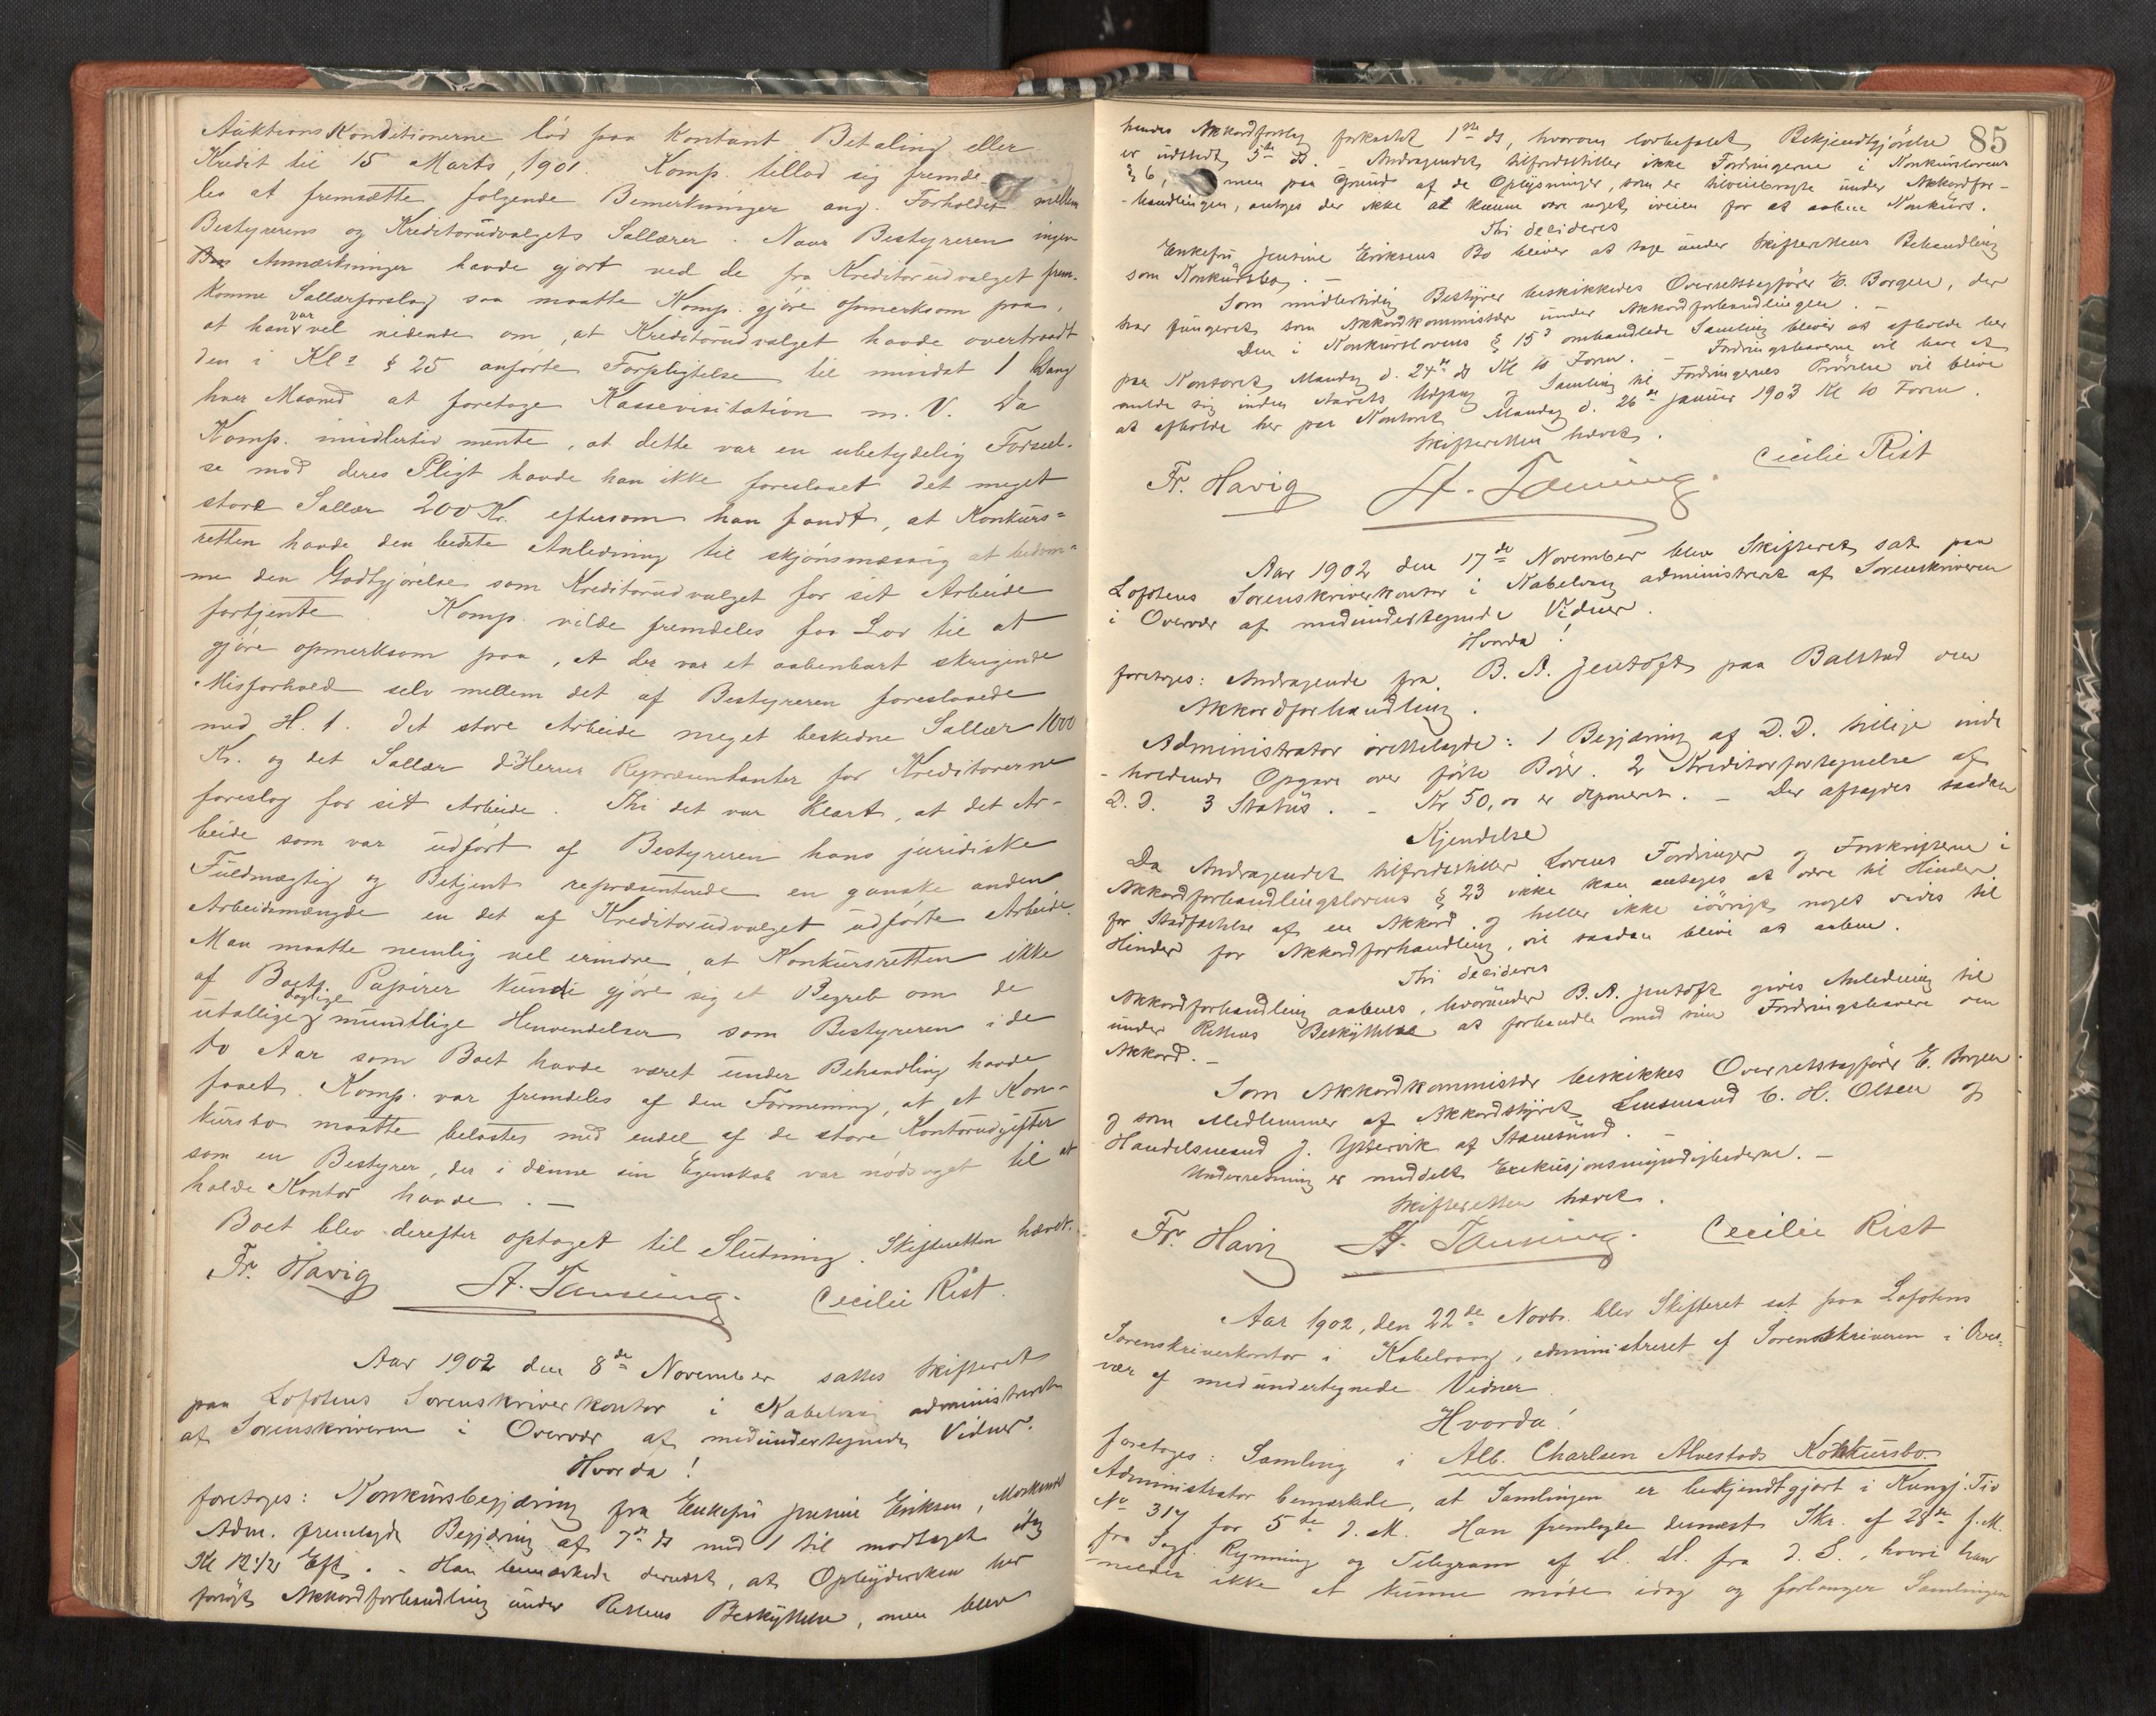 Auktions Konditionerne lød paa Kontant Betaling eller
Kredit til 15 Marts, 1901. Komp. tillod sig fremde
les at fremsætte følgende Bemerkninger ang. Forholdet mellem
Bestyrerens og Kreditorudvalgets Sallærer. Naar Bestyreren ingen
Anmærkninger havde gjort ved de fra Kreditorudvalget frem-
komne Sallærforslag saa maatte Komp. gjøre opmerksom paa,
at han var vel vidende om, at Kreditorudvalget havde overtraadt
den i Kl § 25 anførte Forpligtelse til mindst 1 Gang
hver Maaned at foretage Kassevisitation m. V. Da
Komp. imidlertid mente, at dette var en ubetydelig Forseel-
se mod deres Pligt havde han ikke foreslaaet det meget
store Sallær 200 Kr. eftersom han fandt, at Konkurs=
retten havde den bedste Anledning til skjønsmæssig at bedøm=
me den Godtgjørelse som Kreditorudvalget for sit Arbeide
fortjente. Komp. vilde fremdeles faa Lov til at
gjøre opmerksom paa, at der var et aabenbart skrigende
Misforhold selv mellem det af Bestyreren foreslaaede
med H. t. det store Arbeide meget beskedne Sallær 1000
Kr. og det Sallær d'Herrer Repræsentanter for Kreditorerne
foreslog for sit Arbeide. Thi det var klart, at det Ar-
beide som var udført af Bestyreren hans juridiske
Fuldmægtig og Betjent repræsenterede en ganske anden
Arbeidsmængde en det af Kreditorudvalget udførte Arbeide.
Man maatte nemlig vel erindre, at Konkursretten ikke
af Boets Papirer kunde gjøre sig et Begreb om de
utallige daglige mundtlige Henvendelser som Bestyreren i de
to Aar som Boet havde været under Behandling havde
faaet. Komp. var fremdeles af den Formening, at et Kon-
kursbo maatte belastes med endel af de store Kontorudgifter
som en Bestyrer, der i denne sin Egenskab var nødsaget til at
holde Kontor havde. —
Boet blev derefter optaget til Slutning. Skifteretten hævet.
Fr. Havig Cecilie Rist.
Aar 1902 den 8de November sattes Skifteret
paa Lofotens Sorenskriverkontor i Kabelvaag administreret
af Sorenskriveren i Overvær af medundertegnede Vidner.
Hvorda!
foretoges: Konkursbegjæring fra Enkefru Jensine Eriksen,
Adm. fremlagde Begjæring af 7de ds med 1 til modtaget idag
Kl 12 1/2 Eft. - Han bemærkede dernæst, at har
forsøgt Akkordforhandling under Rettens Beskyttelse, men blev
85
hendes Akkordforslag forkastet 1ste ds, hvorom lovbefalet Bekjendtgjørelse
er udstedt 5te ds. - Andragendet tilfredsstiller ikke Fordringerne i Konkurslovens
§ 6, men paa Grund af de Oplysninger, som er tilveiebragte under Akkordfor-
-handlingen, antages der ikke at kunne være noget iveien for at aabne Konkurs.
Thi decideres
Enkefru Jensine Eriksens Bo bliver at tage under Skifterettens Behandling
som Konkursbo. -
Som midlertidig Bestyrer beskikkedes Overretssagfører E. Borgen, der
har fungeret som Akkordkommissær under Akkordforhandlingen. -
Den i Konkurslovens § 15 omhandlede Samling bliver at afholde her
paa Kontoret Mandag d. 24de ds Kl 10 Form. - Fordringshaverne vil have at
melde sig inden Aarets Udgang og Samling til Fordringernes Prøvelse vil blive
at afholde her paa Kontoret Mandag d. 26de Januar 1903 Kl 10 Form.
Skifteretten hævet.
Fr. Havig Cecilie Rist
Aar 1902 den 17de November blev Skifteret sat paa
Lofotens Sorenskriverkontor i Kabelvaag administreret af Sorenskriveren
i Overvær af medundertegnede Vidner.
Hvorda!
foretoges: Andragende fra B. A. Jentoft paa Balstad om
Akkordforhandling.
Administrator irettelagde: 1 Begjæring af D.D. tillige inde
-holdende Opgave over førte Bøger. 2 Kreditorfortegnelse af
D.D. 3 Status. - Kr 50,00 er deponeret. - Der afsagdes saadan
Kjendelse
Da Andragendet tilfredsstiller Lovens Fordringer og Forskrifterne i
Akkordforhandlingslovens § 23 ikke kan antages at være til Hinder
for Stadfæstelse af en Akkord og heller ikke iøvrigt noget vides til
Hinder for Akkordforhandling, vil saadan blive at aabne.
Thi decideres
Akkordforhandling aabnes, hvorunder B. A. Jentoft gives Anledning til
under Rettens Beskyttelse at forhandle med sine Fordringshavere om
Akkord. -
Som Akkordkommissær beskikkes Overretssagfører E. Borgen
og som Medlemmer af Akkordstyret Lensmand C. H. Olsen og
Handelsmand J. Yttervik af Stamsund. -
Underretning er meddelt Exekusjonsmyndighederne. -
Skifteretten hævet.
Fr. Havig Cecilie Rist
Aar 1902, den 22de Novbr. blev Skifteret sat paa Lofotens
Sorenskriverkontor i Kabelvaag, administreret af Sorenskriveren i Over=
vær af medundertegnede Vidner.
Hvorda!
foretoges: Samling i Alb. Charlsen Alvestads Konkursbo.
Administrator bemærkede, at Samlingen er bekjendtgjort i Kungj. Tid
No 317 for 5te d. M. Han fremlagde dernæst Skr. af 28de f. M.
fra Sagf. Rynning og Telegram af d. d. fra d. S., hvori han
melder ikke at kunne møde idag og forlanger Samlingen